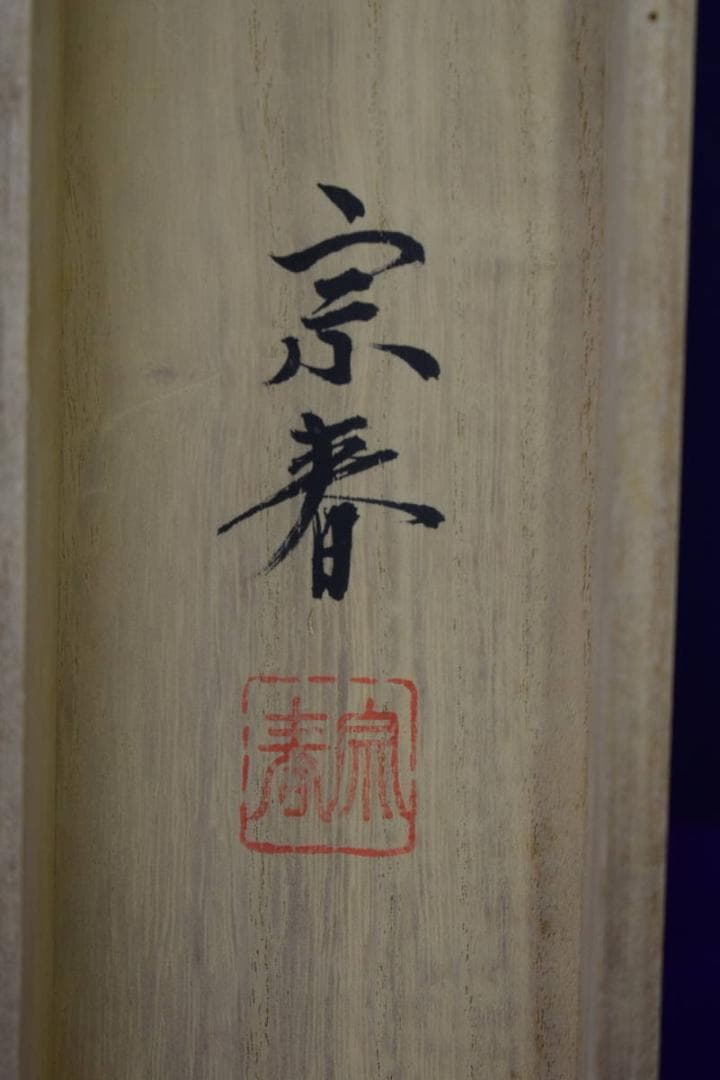 宗春
宗春